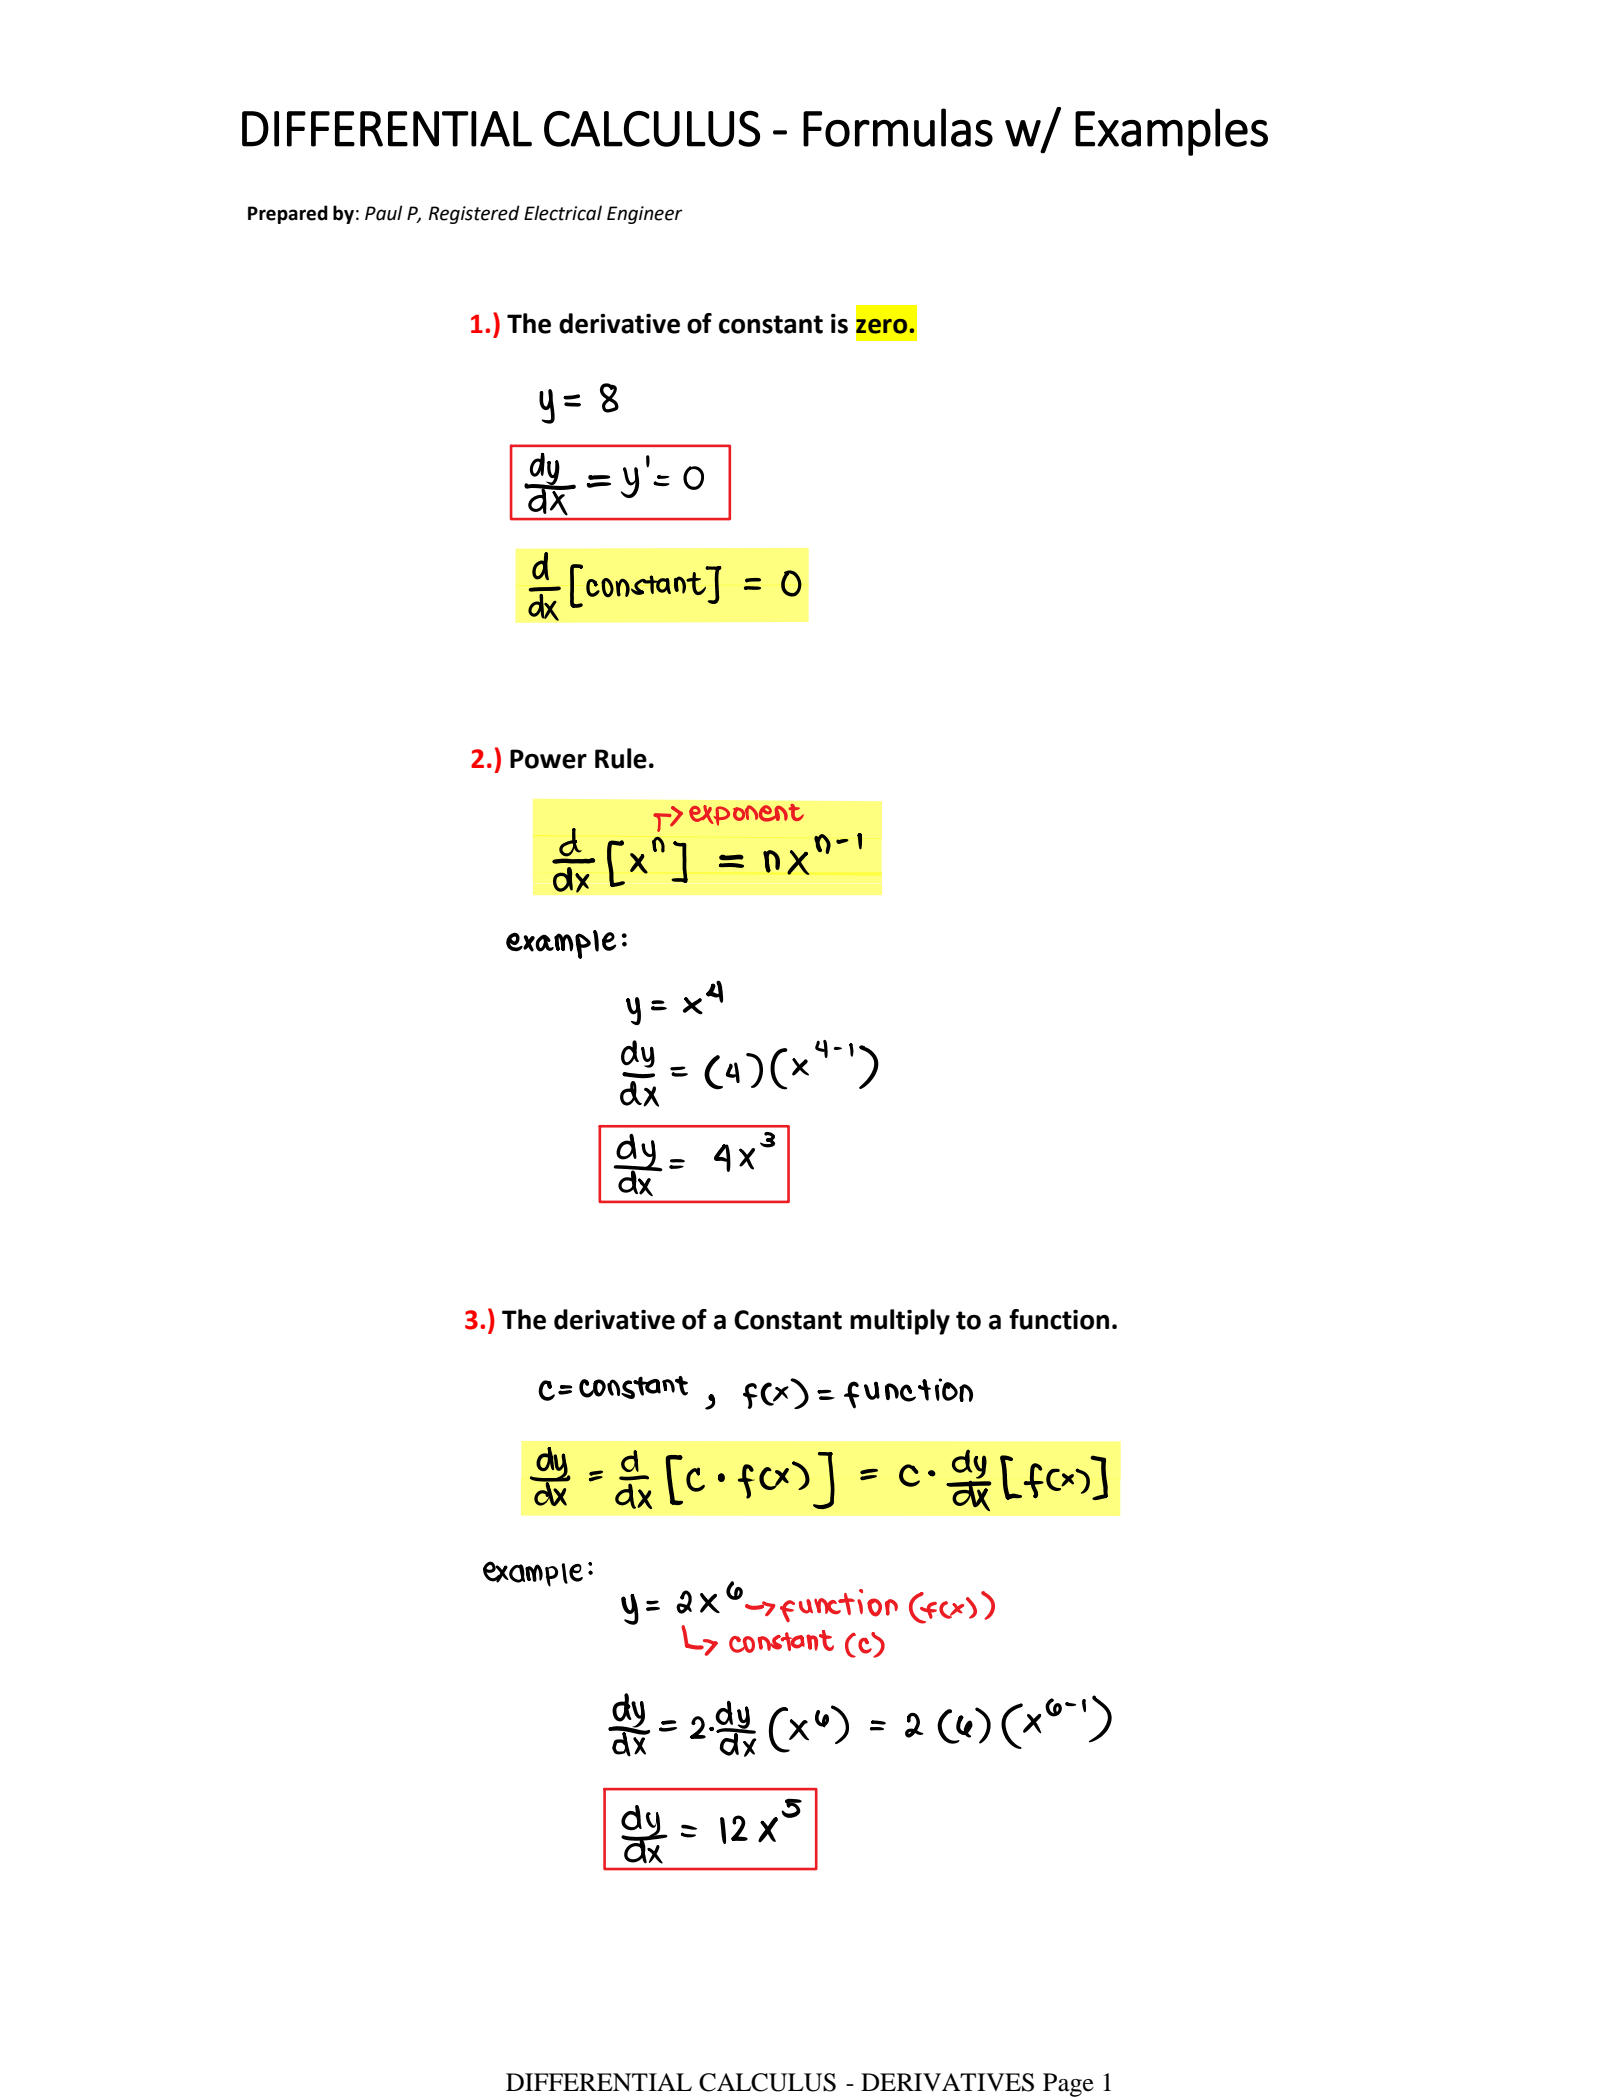 DIFFERENTIAL CALCULUS - Formulas w/ Examples
Prepared by: Paul P, Registered Electrical Engineer
1.) The derivative of constant is zero.
y = 8
dy/dx = y' = 0
d/dx [constant] = 0
2.) Power Rule.
→ exponent
d/dx [xⁿ] = nxⁿ⁻¹
example:
y = x⁴
dy/dx = (4)(x⁴⁻¹)
dy/dx = 4x³
3.) The derivative of a Constant multiply to a function.
c = constant, f(x) = function
dy/dx = d/dx [c · f(x)] = c · dy/dx [f(x)]
example:
y = 2x⁶ → function (f(x))
↳ constant (c)
dy/dx = 2·dy/dx (x⁶) = 2 (6) (x⁶⁻¹)
dy/dx = 12x⁵
DIFFERENTIAL CALCULUS - DERIVATIVES Page 1